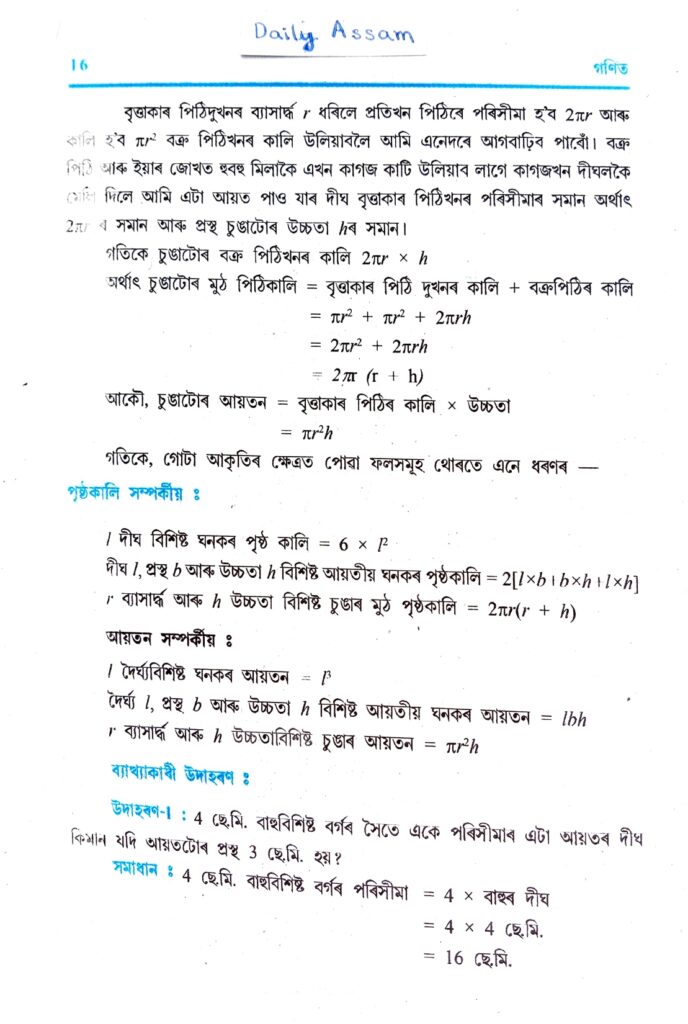 Daily Assam
16 গণিত
বৃত্তাকাৰ পিঠিদুখনৰ ব্যাসাৰ্দ্ধ r ধৰিলে প্ৰতিখন পিঠিৰে পৰিসীমা হ'ব 2πr আৰু
কালি হ'ব πr² বক্ৰ পিঠিখনৰ কালি উলিয়াবলৈ আমি এনেদৰে আগবাঢ়িব পাৰোঁ। বক্ৰ
পিঠি আৰু ইয়াৰ জোখত হুবহু মিলাকৈ এখন কাগজ কাটি উলিয়াব লাগে কাগজখন দীঘলকৈ
মেলি দিলে আমি এটা আয়ত পাও যাৰ দীঘ বৃত্তাকাৰ পিঠিখনৰ পৰিসীমাৰ সমান অৰ্থাৎ
2πr ৰ সমান আৰু প্ৰস্থ চুঙাটোৰ উচ্চতা hৰ সমান।
গতিকে চুঙাটোৰ বক্ৰ পিঠিখনৰ কালি 2πr × h
অৰ্থাৎ চুঙাটোৰ মুঠ পিঠিকালি = বৃত্তাকাৰ পিঠি দুখনৰ কালি + বক্ৰপিঠিৰ কালি
= πr² + πr² + 2πrh
= 2πr² + 2πrh
= 2πr (r + h)
আকৌ, চুঙাটোৰ আয়তন = বৃত্তাকাৰ পিঠিৰ কালি × উচ্চতা
= πr²h
গতিকে, গোটা আকৃতিৰ ক্ষেত্ৰত পোৱা ফলসমূহ থোৰতে এনে ধৰণৰ —
পৃষ্ঠকালি সম্পৰ্কীয় :
l দীঘ বিশিষ্ট ঘনকৰ পৃষ্ঠ কালি = 6 × l²
দীঘ l, প্ৰস্থ b আৰু উচ্চতা h বিশিষ্ট আয়তীয় ঘনকৰ পৃষ্ঠকালি = 2[l×b+b×h+l×h]
r ব্যাসাৰ্দ্ধ আৰু h উচ্চতা বিশিষ্ট চুঙাৰ মুঠ পৃষ্ঠকালি = 2πr(r + h)
আয়তন সম্পৰ্কীয় :
l দৈৰ্ঘ্যবিশিষ্ট ঘনকৰ আয়তন = l³
দৈৰ্ঘ্য l, প্ৰস্থ b আৰু উচ্চতা h বিশিষ্ট আয়তীয় ঘনকৰ আয়তন = lbh
r ব্যাসাৰ্দ্ধ আৰু h উচ্চতাবিশিষ্ট চুঙাৰ আয়তন = πr²h
ব্যাখ্যাকাৰী উদাহৰণ :
উদাহৰণ-1 : 4 ছে.মি. বাহুবিশিষ্ট বৰ্গৰ সৈতে একে পৰিসীমাৰ এটা আয়তৰ দীঘ
কিমান যদি আয়তটোৰ প্ৰস্থ 3 ছে.মি. হয়?
সমাধান : 4 ছে.মি. বাহুবিশিষ্ট বৰ্গৰ পৰিসীমা = 4 × বাহুৰ দীঘ
= 4 × 4 ছে.মি.
= 16 ছে.মি.